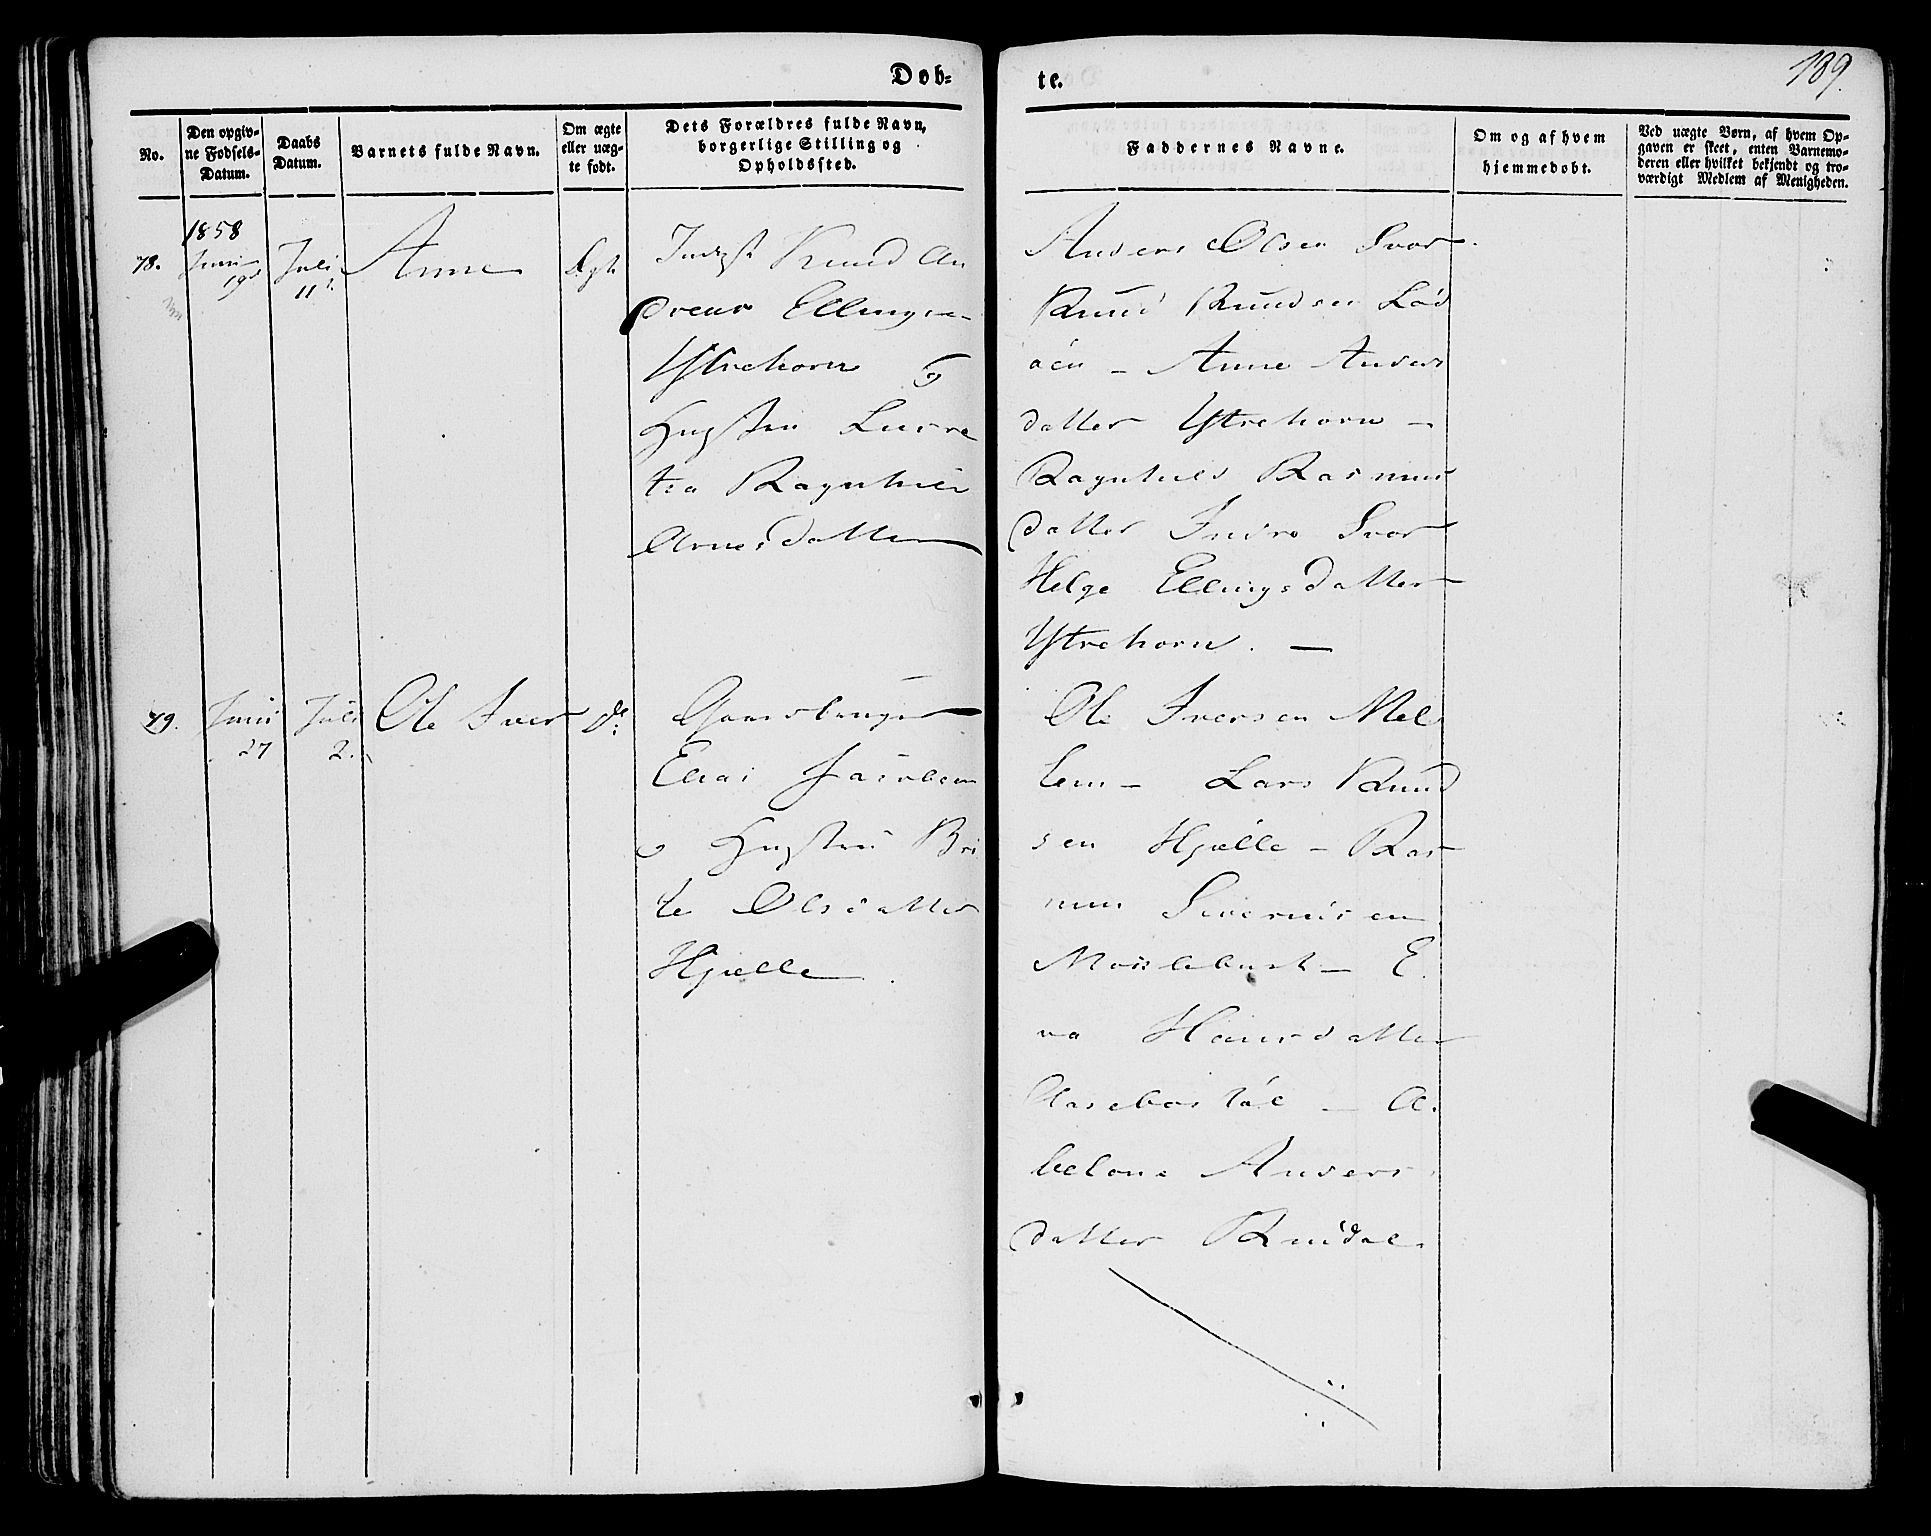 Døb-
te.
189.
No.
Den opgiv-
ne Fødsels-
Datum.
Daabs
Datum.
Barnets fulde Navn.
Om ægte
eller uæg-
te født.
Dets Forældres fulde Navn,
borgerlige Stilling og
Opholdssted.
Faddernes Navne.
Om og af hvem
hjemmedøbt.
Ved uægte Børn, af hvem Op-
gaven er skeet, enten Barnemo-
deren eller hvilket bekjendt og tro-
værdigt Medlem af Menigheden.
1858
78.
Juni
19
Juli
11
Anne
Ægte
Inderst Knud An
dreas Ellingsen
Ystrehorn og
Hustru
Ragnhild
Arnesdatter
Anders Olsen Svor
Knud Knudsen Lød
øen - Anne Anders
datter Ystrehorn -
Ragnhild Rasmus
datter Indre Svor
Helge Ellingsdatter
Ystrehorn. -
79.
Juni
27
Juli
2.
Ole Iver
do
Gaardbruger
Elias Jacobsen
o Hustru Bri
te Olsdatter
Hjelle.
Ole Iversen Mel
lem - Lars Knud
sen Hjelle - Ras
mus Siverinsen
- E.
va Hansdatter
Aasebøstøl - A.
belone Anders
datter